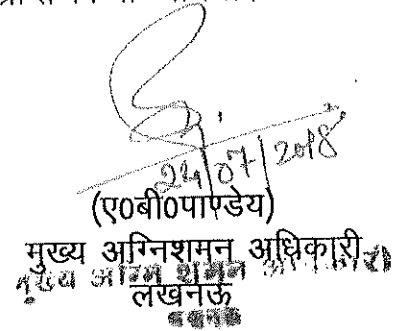 24/07/2018
(ए0बी0पाण्डेय)
मुख्य अग्निशमन अधिकारी
मुख्य अग्नि शमन अधिकारी
लखनऊ
लखनऊ